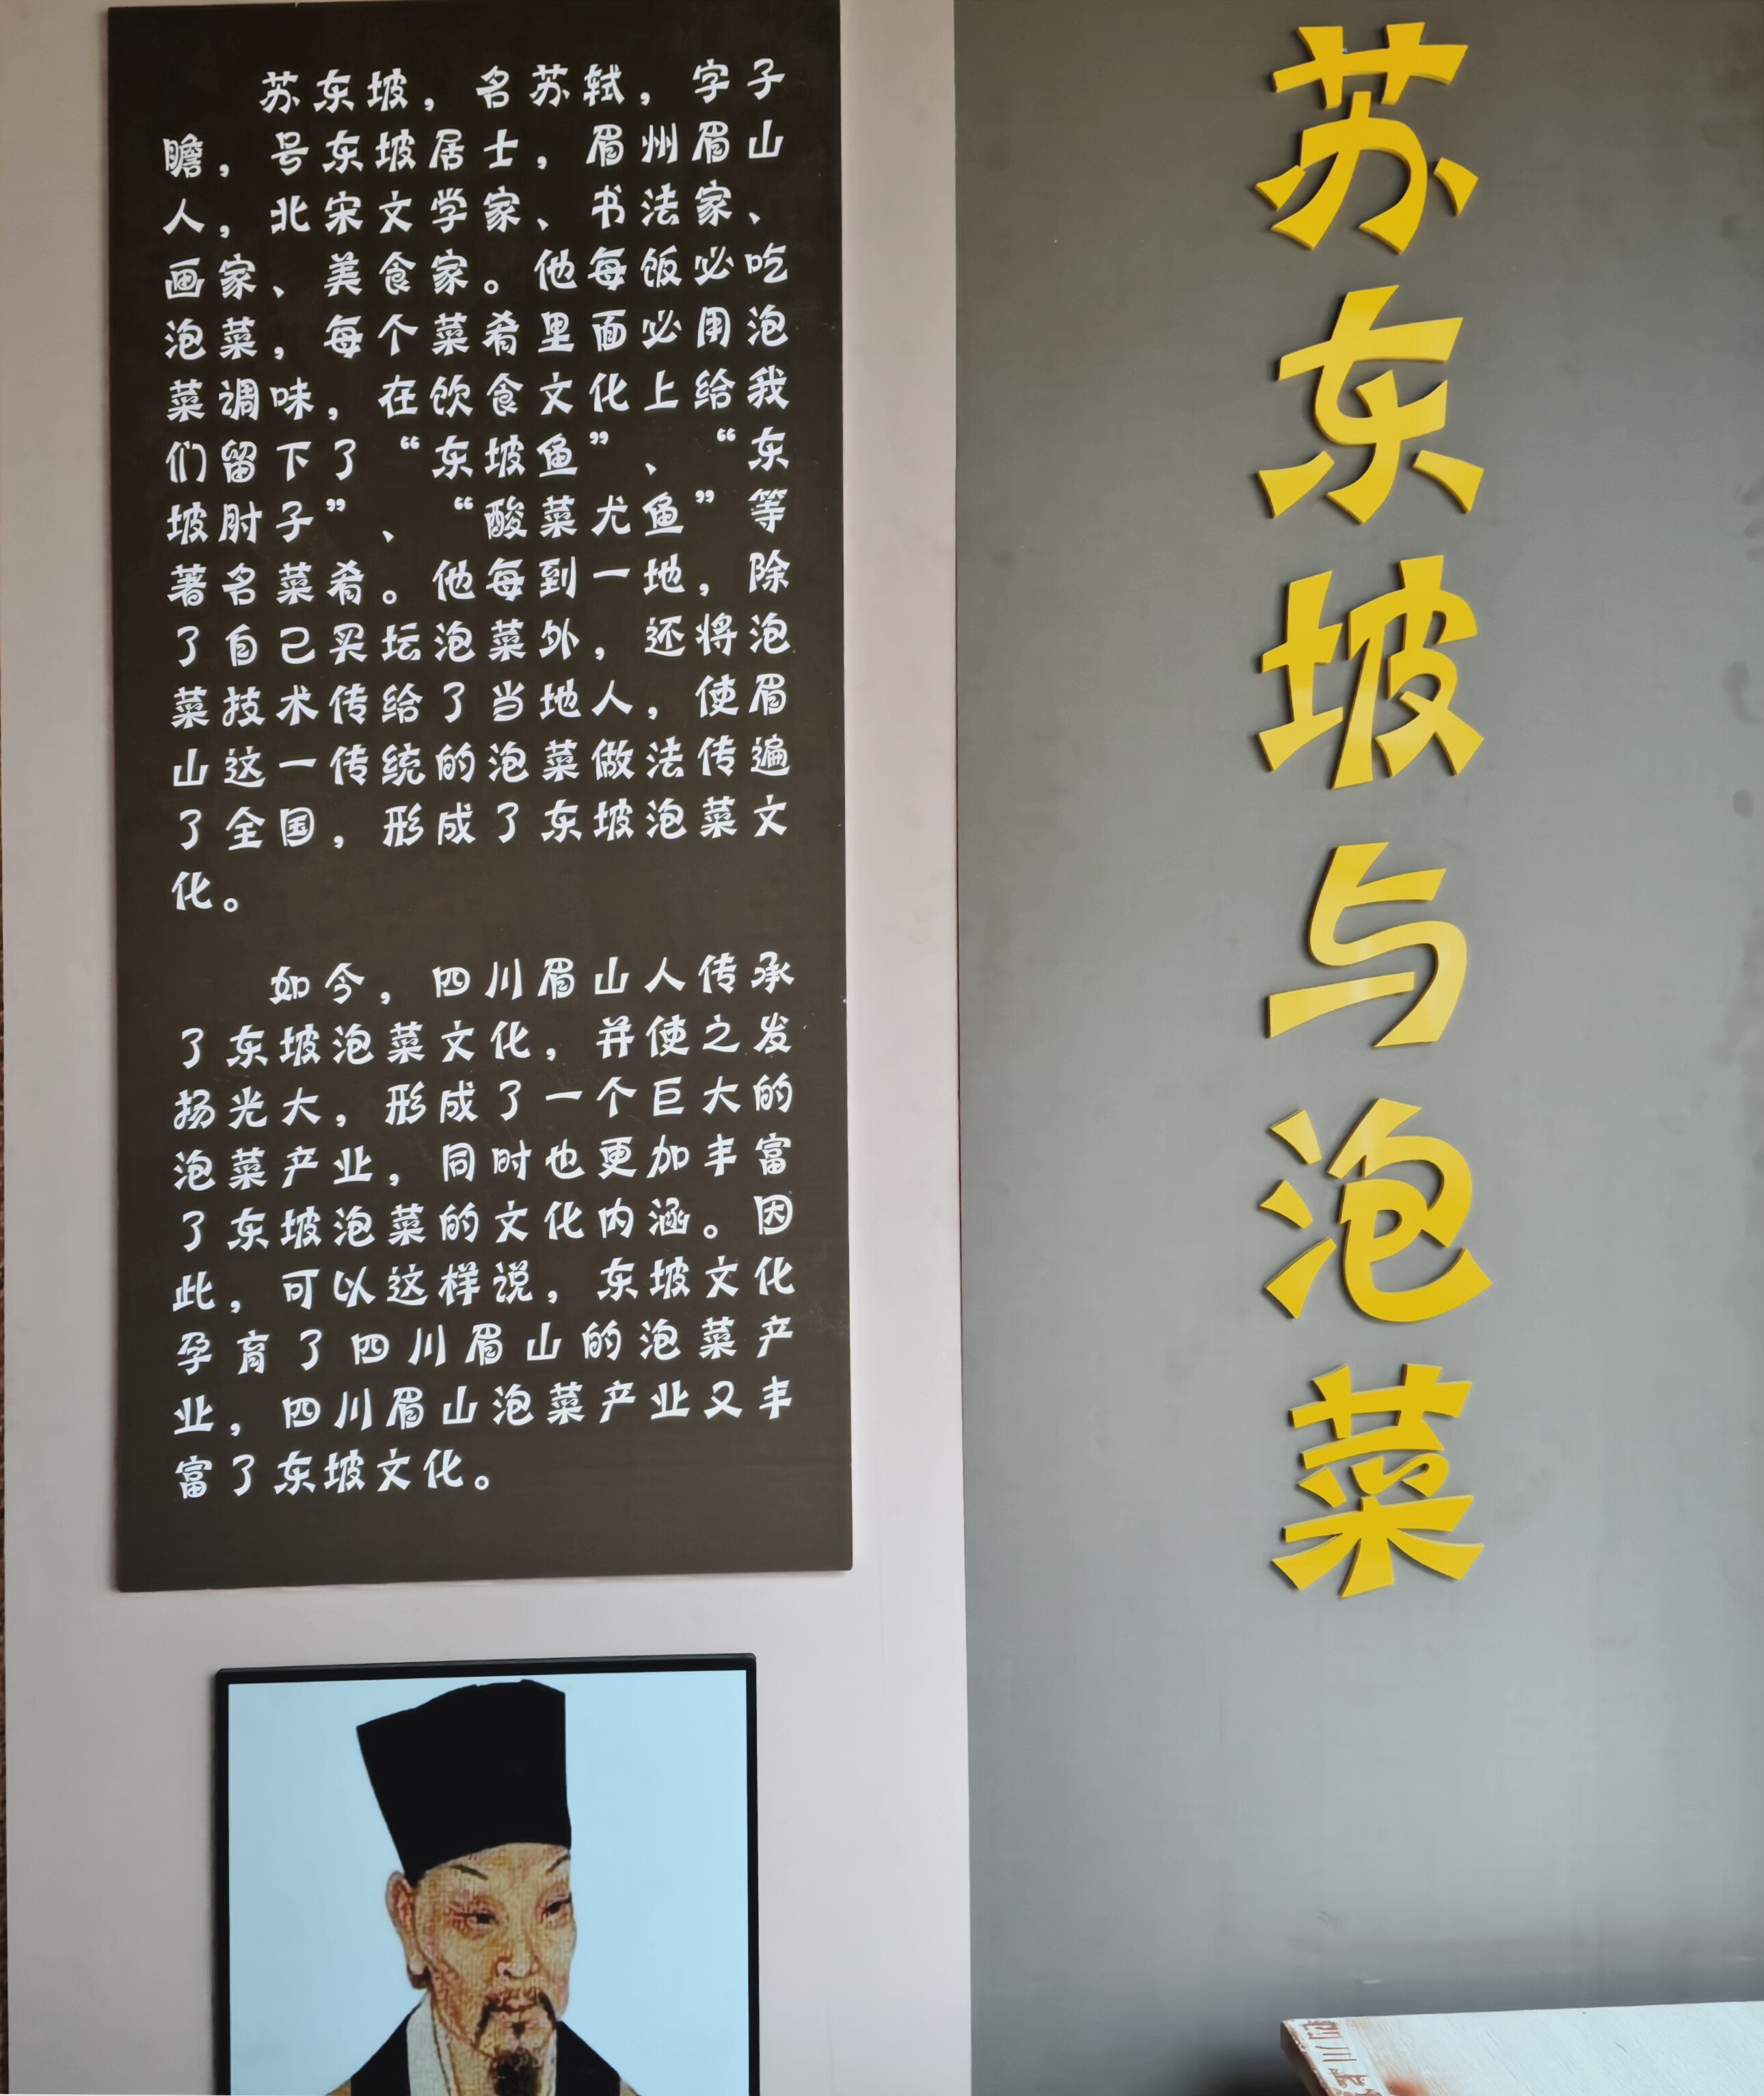 苏东坡与泡菜
苏东坡，名苏轼，字子
瞻，号东坡居士，眉州眉山
人，北宋文学家、书法家、
画家、美食家。他每饭必吃
泡菜，每个菜肴里面必用泡
菜调味，在饮食文化上给我
们留下了“东坡鱼”、“东
坡肘子”、“酸菜尤鱼”等
著名菜肴。他每到一地，除
了自己买坛泡菜外，还将泡
菜技术传给了当地人，使眉
山这一传统的泡菜做法传遍
了全国，形成了东坡泡菜文
化。
如今，四川眉山人传承
了东坡泡菜文化，并使之发
扬光大，形成了一个巨大的
泡菜产业，同时也更加丰富
了东坡泡菜的文化内涵。因
此，可以这样说，东坡文化
孕育了四川眉山的泡菜产
业，四川眉山泡菜产业又丰
富了东坡文化。
四川上